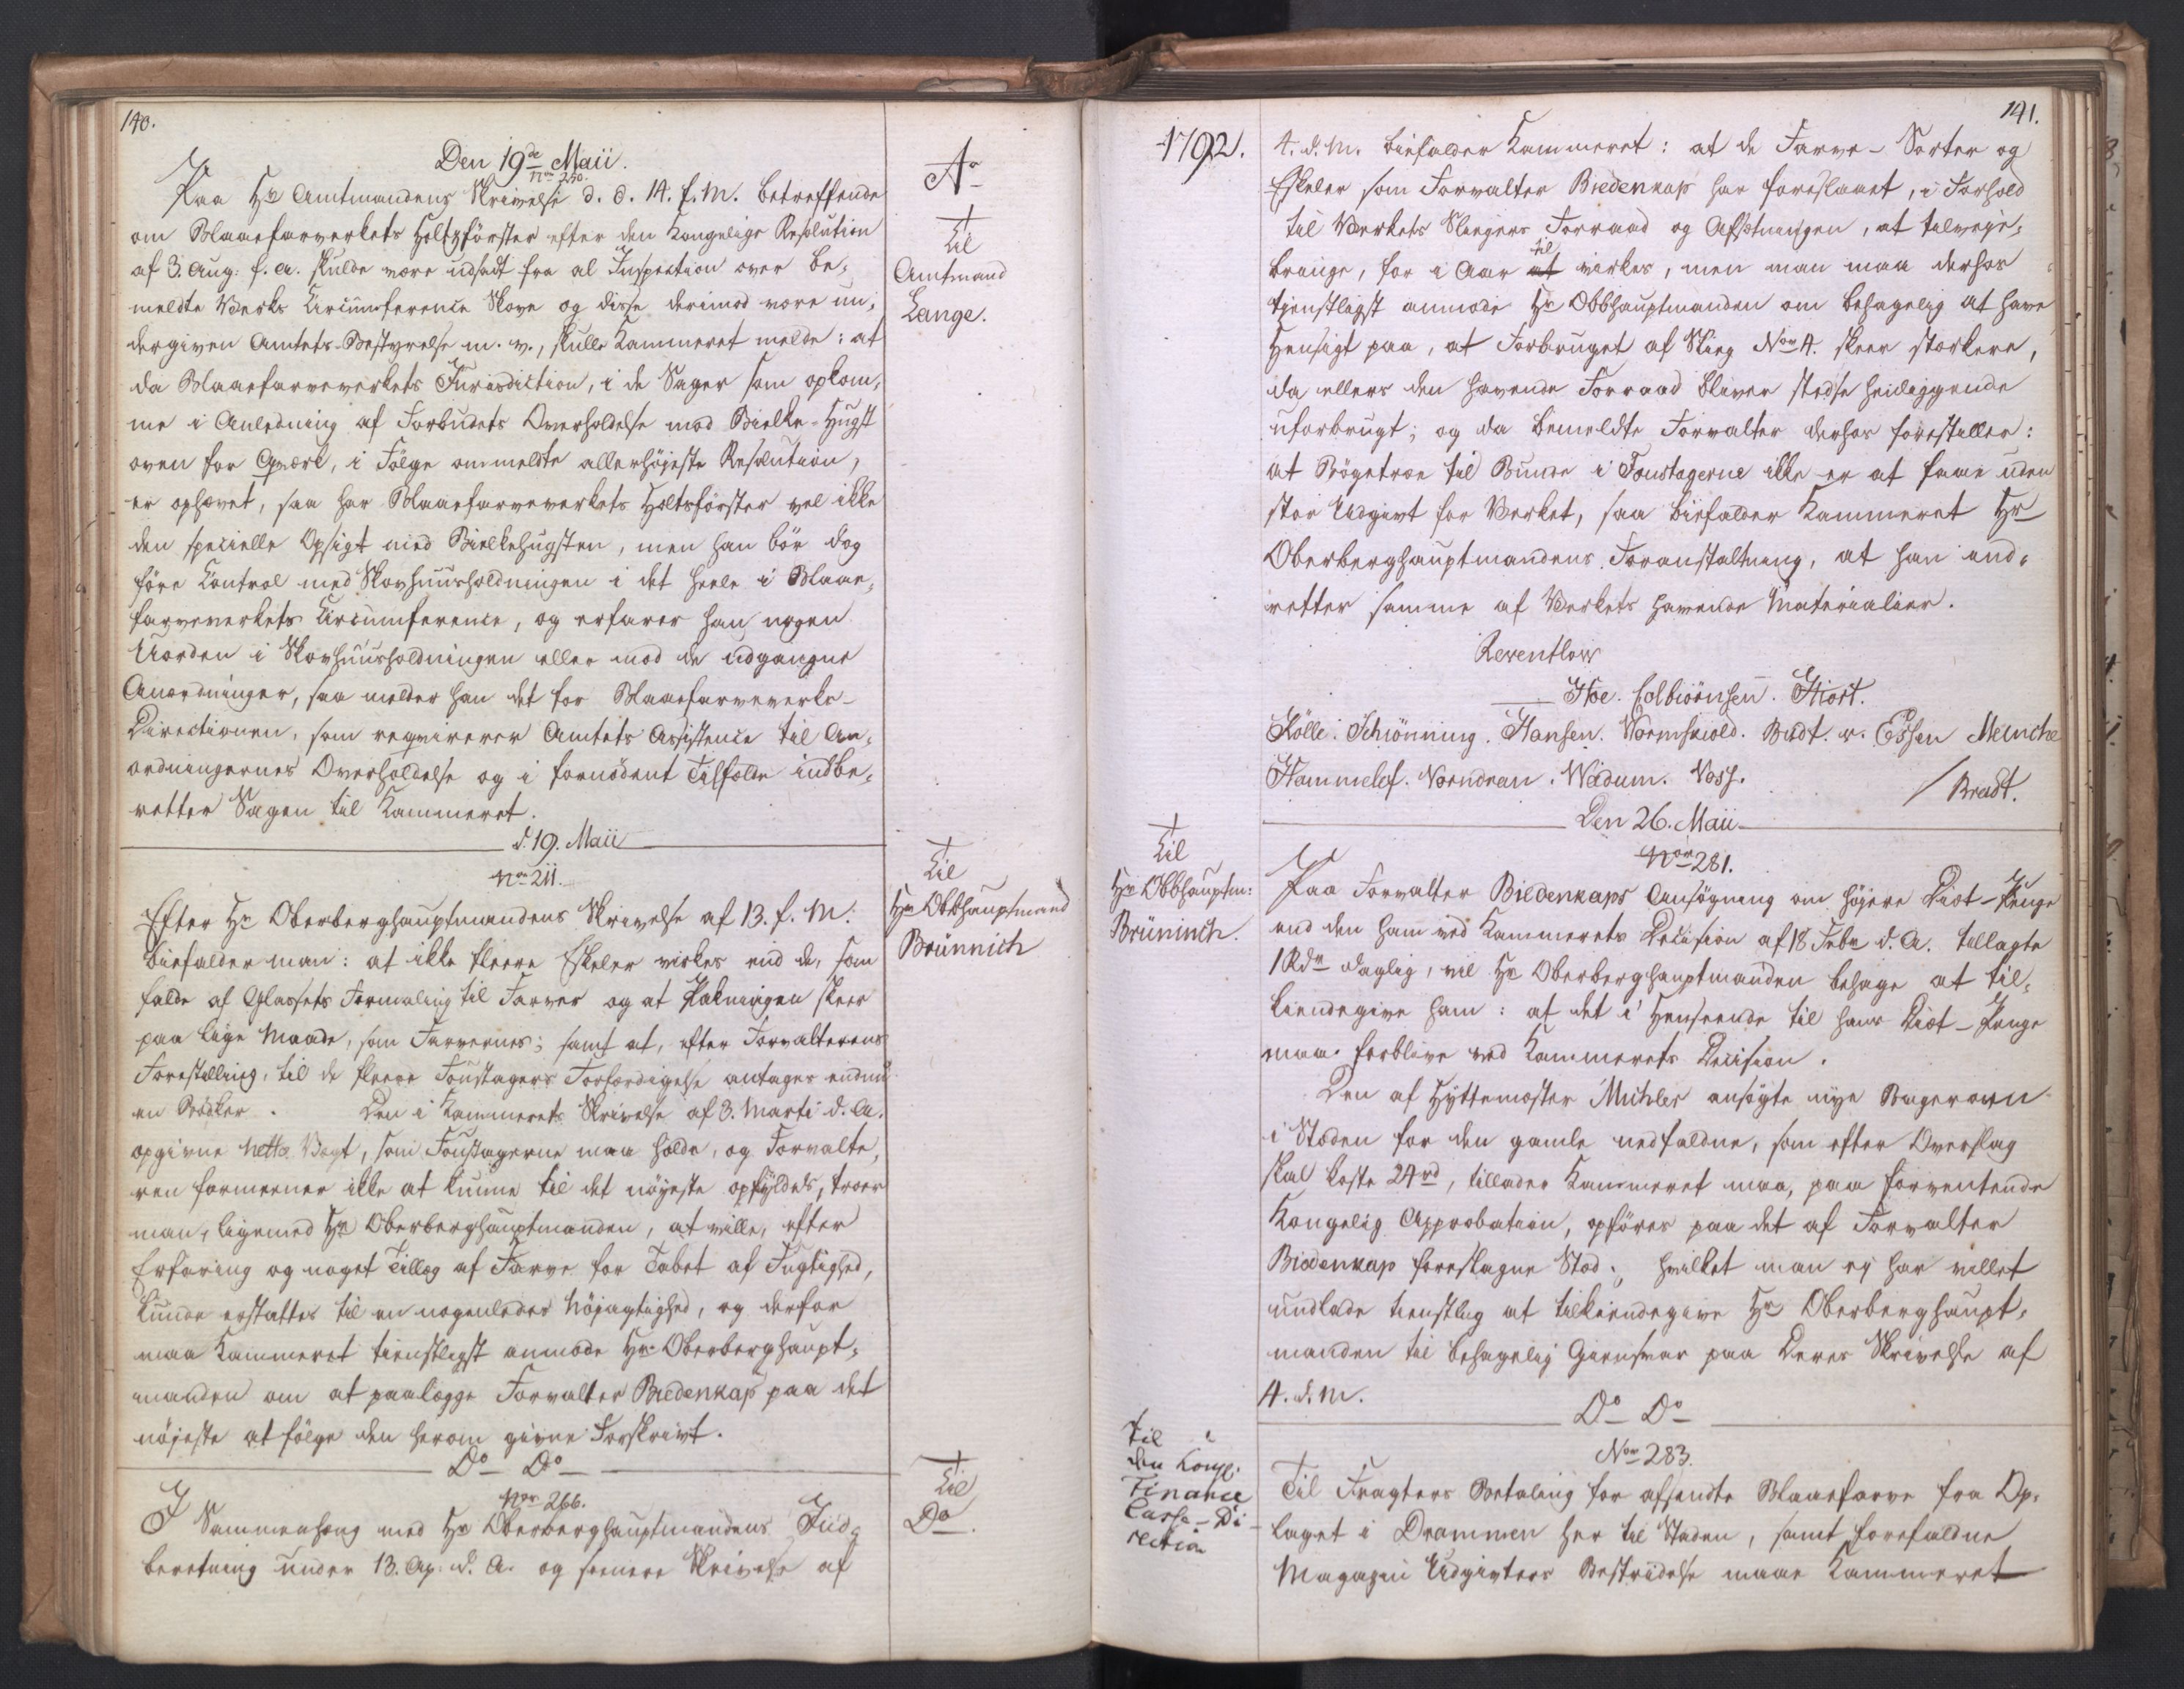 140.
Den 19de Maii.
Nor 250.
Paa Hr Amtmandens Skrivelse d. d. 14. f. M. betreffende
om Blaaefarverkets Holtzförster efter den Kongelige Resolution
af 3. Aug: f. A. skulde være udsadt fra al Inspection over be-
meldte Værks Circumference Skove og disse derimod være un-
dergiven Amtets-Bestyrelse m. v., skulle Kammeret melde: at
da Blaaefarveverkets Jurisdiction, i de Sager som opkom-
me i Anledning af Forbudets Overholdelse mod Bielke-Hugst
oven for Qværk, i Fölge ommeldte allerhöjeste Resolution,
er ophævet, saa har Blaaefarveverkets Holtsförster vel ikke
den specielle Opsigt med Bielkehugsten, men han bör dog
före Control med Skovhuusholdningen i det heele i Blaae-
farveverkets Circumference, og erfarer han nogen
Uorden i Skovhuusholdningen eller mod de udgangne
Anordninger, saa melder han det for Blaaefarveverks-
Directionen, som reqvirerer Amtets Assistence til An-
ordningernes Overholdelse og i fornödent Tilfælde indbe-
retter Sagen til Kammeret.
Ao
Til
Amtmand
Lange.
d. 19. Maii
Nor 211.
Efter Hr Oberberghauptmandens Skrivelse af 13. f. M.
biefalder man: at ikke fleere Eskeler virkes end de, som
falde af Glassets Formaling til Farver og at Pakningen skeer
paa lige Maade, som Farvernes; samt at, efter Forvalterens
Forestilling, til de fleere Foustagers Forfærdigelse antages endnu
en Bödker. Den i Kammerets Skrivelse af 3. Marti d. A.
opgivne Netto Vægt, som Foustagerne maa holde, og Forvalte-
ren formeener ikke at kunne til det nöyeste opfyldes, troer
man, ligemed Hr Oberberghauptmanden, at ville, efter
Erfaring og noget Tillæg af Farve for Tabet af Fugtighed,
kunde erstattes til en nogenledes Nöjagtighed, og derfor
maa Kammeret tienstligst anmode Hr Oberberghaupt-
manden om at paalægge Forvalter Biedenkap paa det
nöjeste at fölge den herom givne Forskrivt.
Til
Hr Obbhauptmand
Brünnich
Do Do
Nor 266.
I Sammenhæng med Hr Oberberghauptmandens Ind-
beretning under 13. Ap: d. A. og seenere Skrivelse af
Til
Do.
141.
1792.
4. d. M. biefalder Kammeret: at de Farve-Sorter og
Eskeler som Forvalter Biedenkap har foreslaaet, i Forhold
til Værkets Sliegers Forraad og Afsætningen, at tilveje-
bringe, for i Aar at til virkes, men man maa derhos
tjenstligst anmode Hr Obbhauptmanden om behagelig at have
Hensigt paa, at Forbruget af Slieg Nor 4. skeer stærkere,
da ellers den havende Forraad bliver stedse henliggende
uforbrugt; og da bemeldte Forvalter derhos forestiller:
at Bögetræe til Bunde i Foustagerne ikke er at faae uden
stor Udgivt for Verket, saa biefalder Kammeret Hr
Oberberghauptmandens Foranstaltning, at han and-
vetter samme af Verkets havende Materialier.
Reventlow
Hoe. Colbiörnsen. Hiort.
Kölle. Schiönning. Hansen. Wormskiold. Bredt. v. Essen Meinche
Hammelef. Norndran. Wadum. Voss.
/ Bradt.
Den 26. Maii
Nor 281.
Paa Forvalter Biedenkaps Ansögning om höjere Diæt-Penge
end den ham ved Kammerets Decision af 18 Febr d. A. tillagte
1 Rdr daglig, vil Hr Oberberghauptmanden behage at til-
kiendegive ham: at det i Henseende til hans Diæt-Penge
maa forblive ved Kammerets Decision.
Den af Hyttemester Mühler ansögte nye Bagerovn
i Stæden for den gamle nedfaldne, som efter Overslag
skal koste 24 rd, tillader Kammeret maa, paa forventende
Kongelig Approbation, opföres paa det af Forvalter
Biedenkap foreslagne Stæd; hvilket man ej har villet
undlade tienstlig at tilkiendegive Hr Oberberghaupt-
manden til behagelig Giensvar paa Deres Skrivelse af
4. d. M.
Til
Hr Obbhauptm:
Brüninch.
Do Do
Nor 283.
Til Fragters Betaling for afsendte Blaaefarve fra Op-
laget i Drammen her til Staden, samt forefaldne
Magazin Udgivters Bestridelse maae Kammeret
Til
den Kongl.
Finance
Casse-Di-
rection